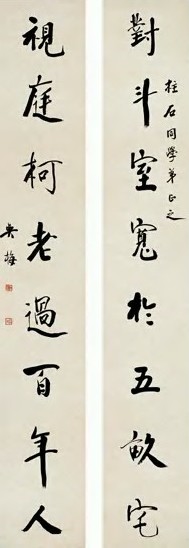 對斗室寬於五畝宅
柱石同學弟正之
視庭柯老過百年人
吳梅